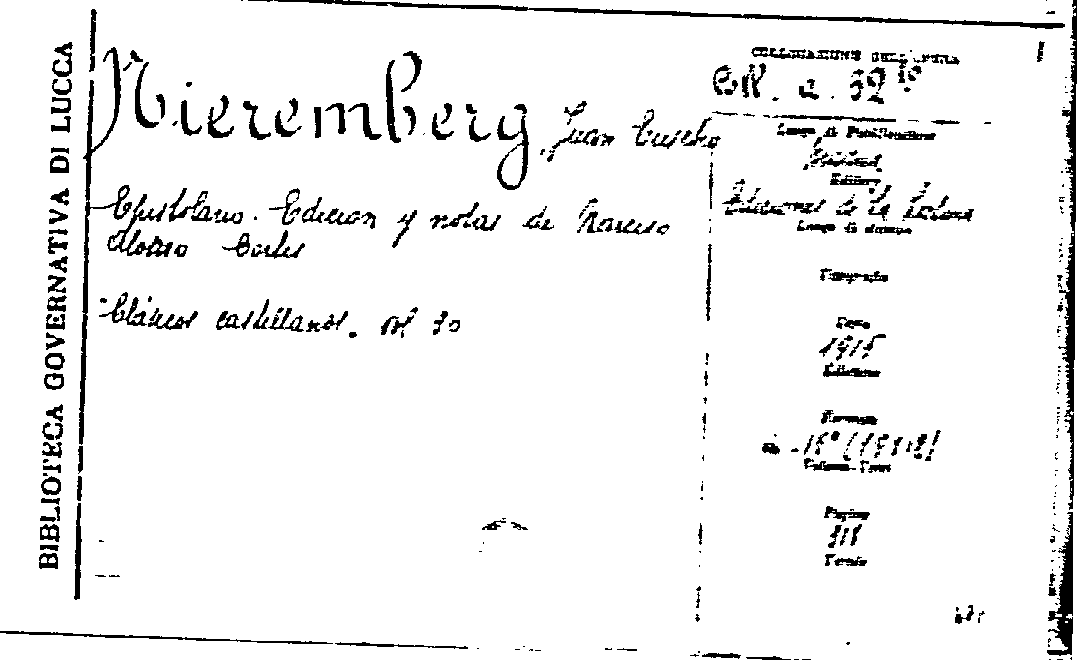 BIBLIOTECA GOVERNATIVA DI LUCCA
Nieremberg, Juan Eusebio
Epistolario. Edición y notas de Narciso
Alonso Cortés
Clásicos castellanos. vol 30
COLLOCAZIONE DELL'OPERA
a. 52
Luogo di Pubblicazione
Madrid
Editore
Ediciones de la Lectura
Luogo di stampa
Tipografia
Data
1915
Edizione
Formato
16°
Volume - Tomo
Pagine
Tavole